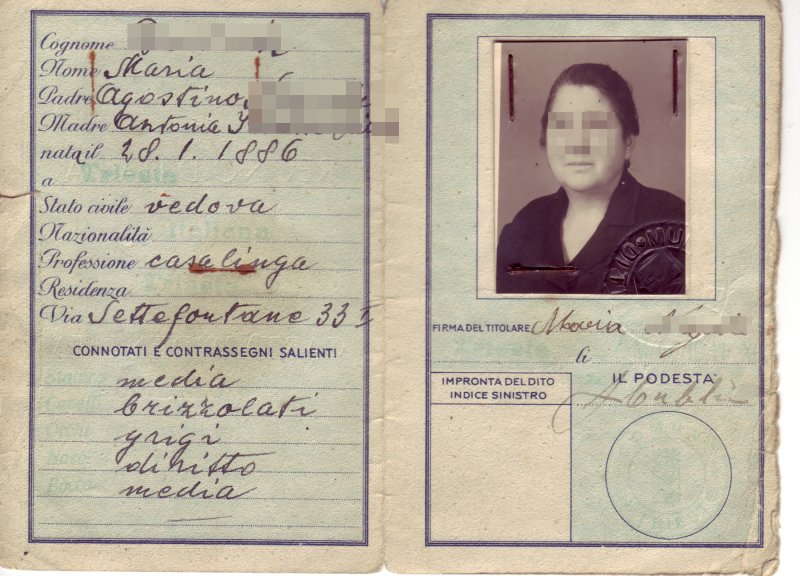 Cognome
Nome Maria
Padre Agostino
Madre Antonia
nata il 28.1.1886
a Trieste
Stato civile vedova
Nazionalità Italiana
Professione casalinga
Residenza
Via Settefontane 33 I
CONNOTATI E CONTRASSEGNI SALIENTI
media
brizzolati
grigi
diritto
media
FIRMA DEL TITOLARE Maria
Trieste li
IMPRONTA DEL DITO
INDICE SINISTRO
IL PODESTÀ